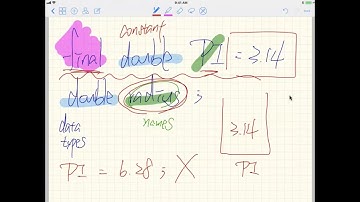 9:41 AM
constant
final double PI = 3.14
double radius ;
data types
names
3.14
PI
PI = 6.28 ; X